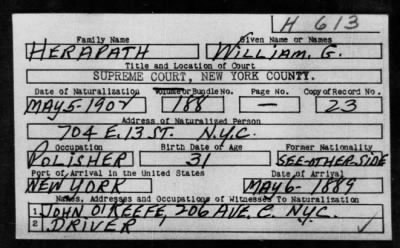 H 613
Family Name Given Name or Names
HERAPATH WILLIAM. G.
Title and Location of Court
SUPREME COURT, NEW YORK COUNTY.
Date of Naturalization Volume or Bundle No. Page No. Copy of Record No.
MAY 5-1902 188 — 23
Address of Naturalized Person
704 E. 13 ST. N.Y.C.
Occupation Birth Date or Age Former Nationality
POLISHER 31 SEE-OTHER-SIDE
Port of Arrival in the United States Date of Arrival
NEW YORK MAY 6-1889
Names, Addresses and Occupations of Witnesses To Naturalization
1 JOHN O'KEEFE, 206 AVE. C. N.Y.C.
2 DRIVER